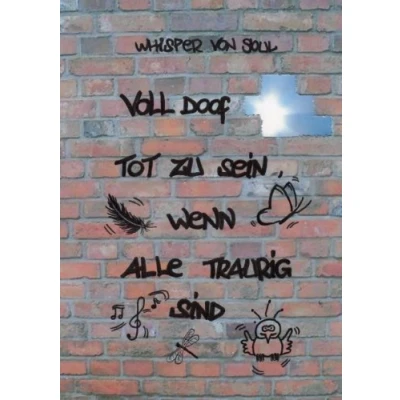 WHISPER VON SOUL
VOLL DOOF
TOT ZU SEIN,
WENN
ALLE TRAURIG
SIND